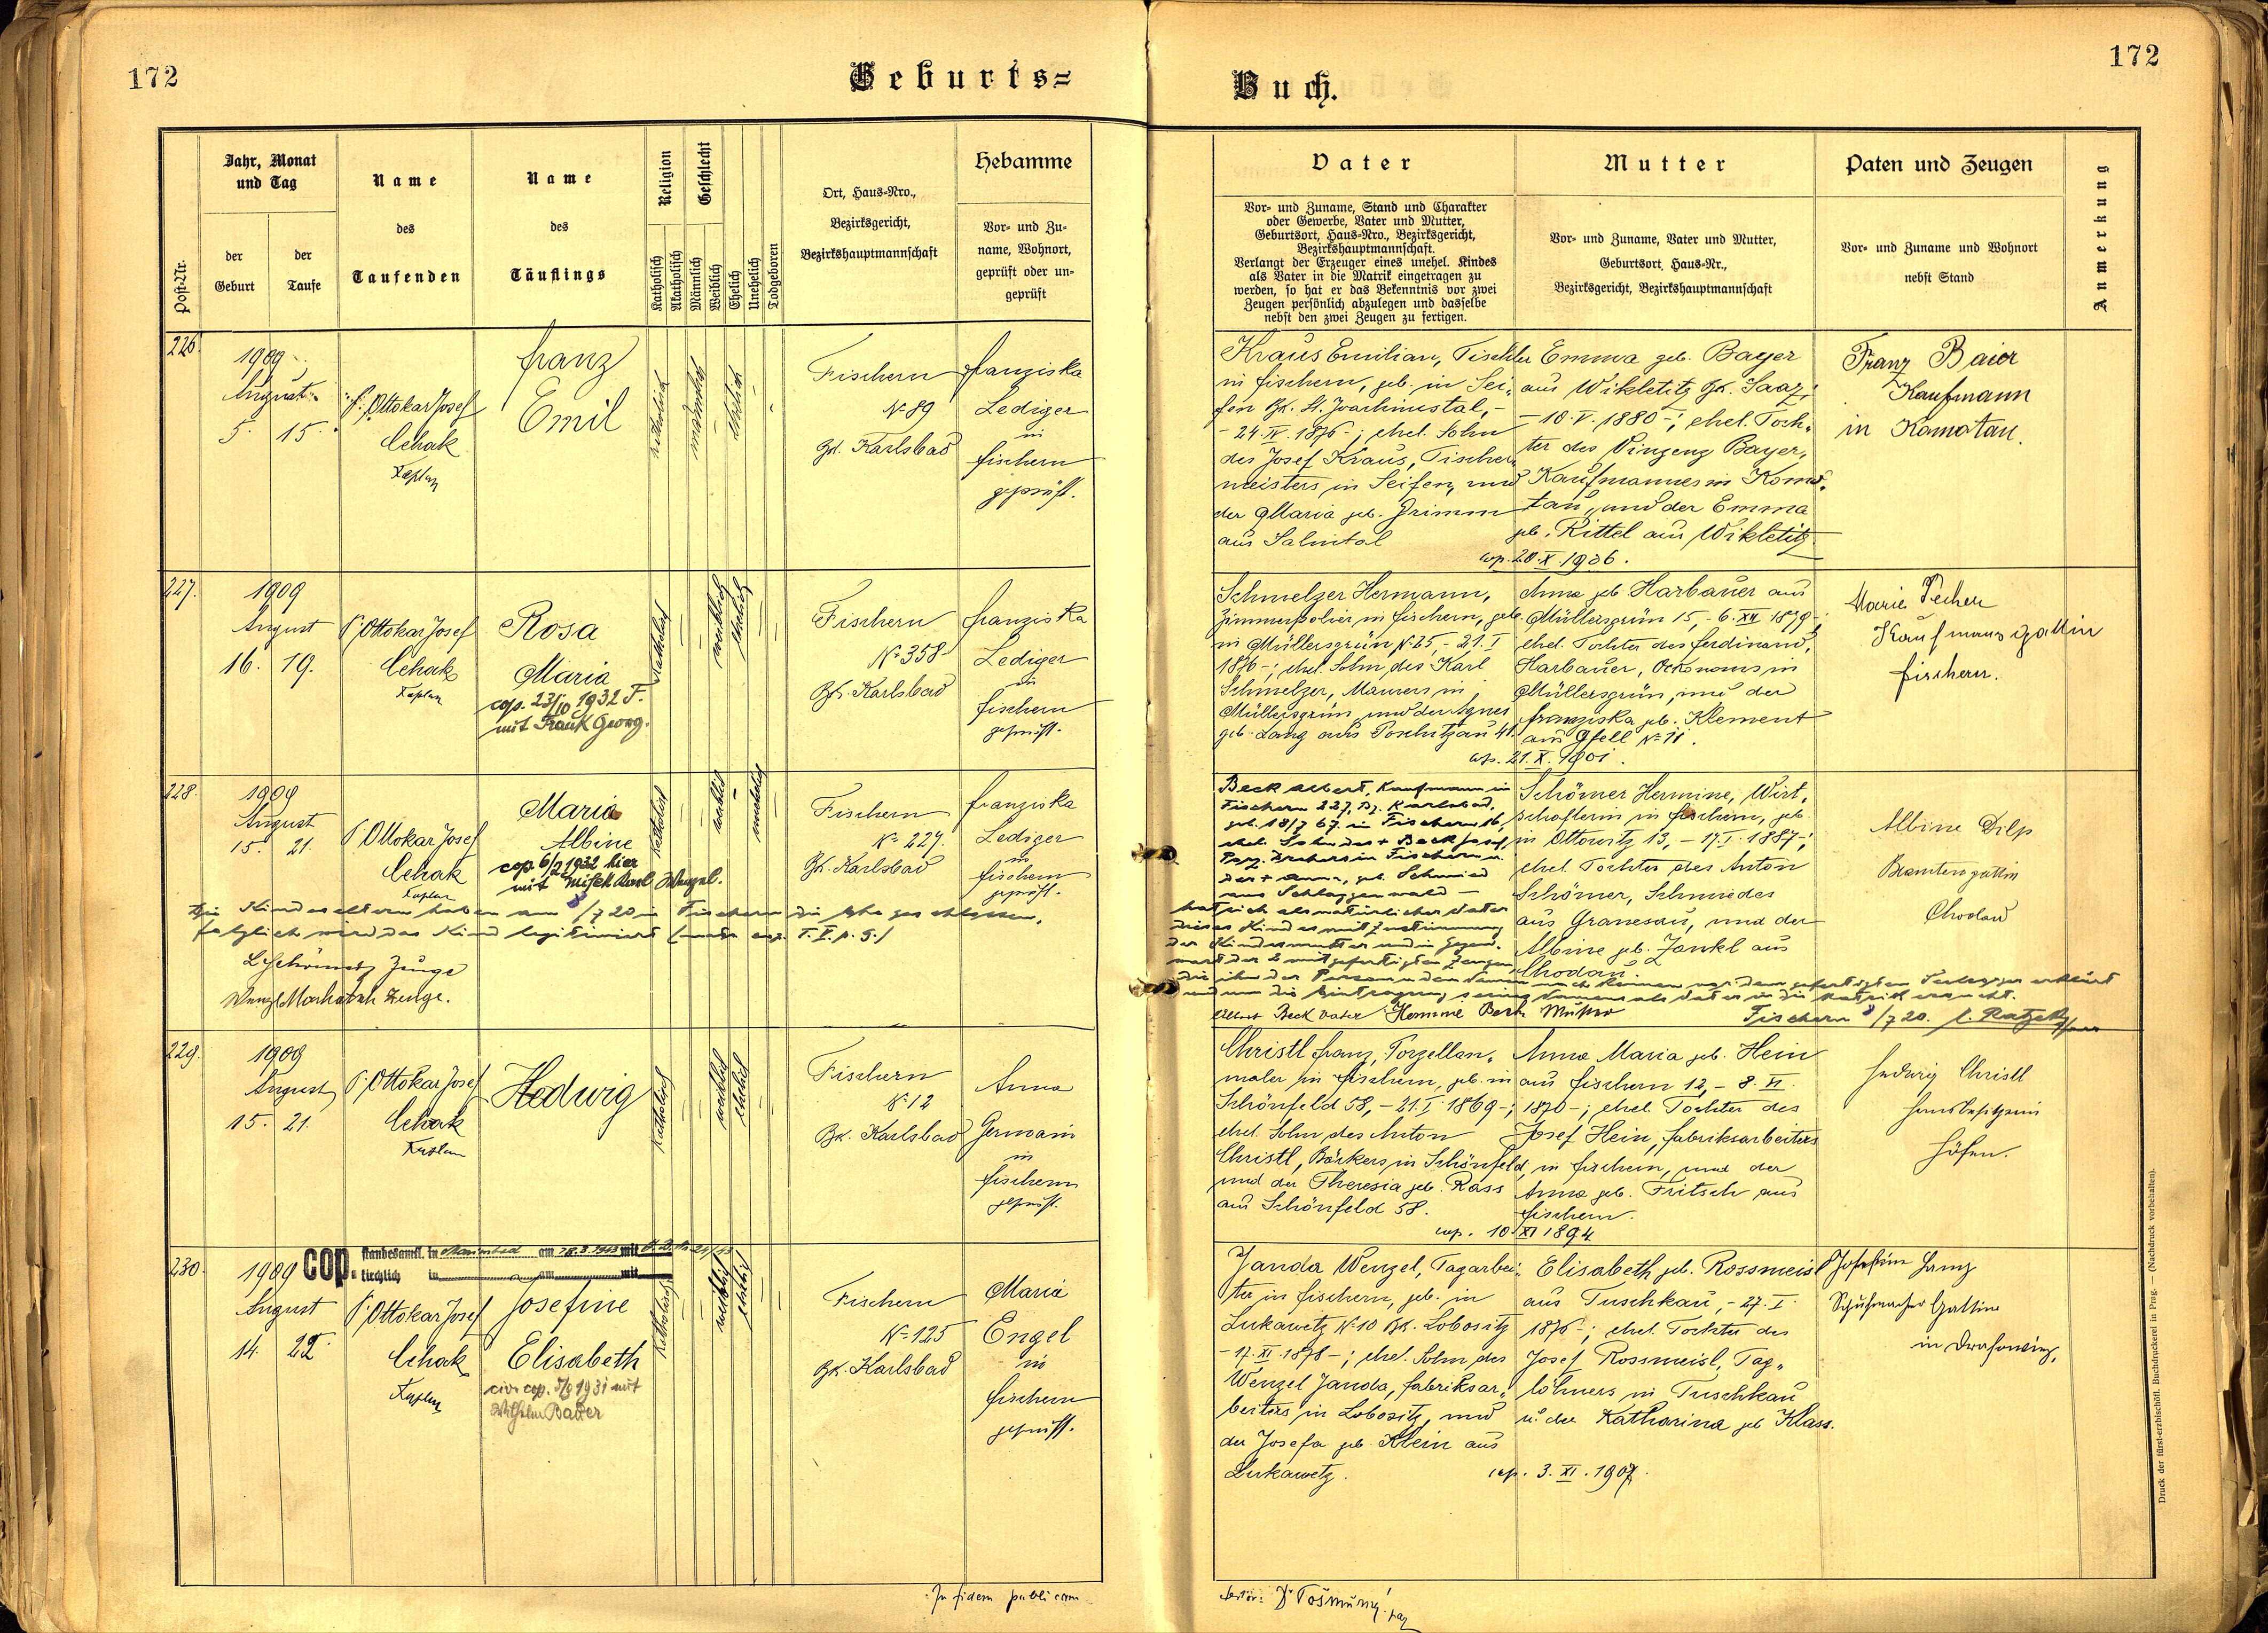 172
Geburts=
Buch.
172
Post-Nr.
Jahr, Monat
und Tag
der
Geburt
der
Taufe
Name
des
Taufenden
Name
des
Täuflings
Religion
Katholisch
Akatholisch
Geschlecht
Männlich
Weiblich
Ehelich
Unehelich
Todgeboren
Ort, Haus=Nro.,
Bezirksgericht,
Bezirkshauptmannschaft
Hebamme
Vor= und Zu=
name, Wohnort,
geprüft oder un=
geprüft
Vater
Vor= und Zuname, Stand und Charakter
oder Gewerbe, Vater und Mutter,
Geburtsort, Haus=Nro., Bezirksgericht,
Bezirkshauptmannschaft.
Verlangt der Erzeuger eines unehel. Kindes
als Vater in die Matrik eingetragen zu
werden, so hat er das Bekenntnis vor zwei
Zeugen persönlich abzulegen und dasselbe
nebst den zwei Zeugen zu fertigen.
Mutter
Vor= und Zuname, Vater und Mutter,
Geburtsort, Haus=Nr.,
Bezirksgericht, Bezirkshauptmannschaft
Paten und Zeugen
Vor= und Zuname und Wohnort
nebst Stand
Anmerkung
226.
1909
August
5. 15.
P. Ottokar Josef
Cehak
Kaplan
Franz
Emil
katholisch
männlich
ehelich
Fischern
No 89
Bk. Karlsbad
Franziska
Lediger
in
Fischern
geprüft.
Kraus Emilian, Tischler
in Fischern, geb. in Sei=
fen Bk. St. Joachimstal, -
- 24. IV. 1876 -; ehel. Sohn
des Josef Kraus, Tischler=
meisters in Seifen, und
der Maria geb. Grimm
aus Salmtal
Emma geb. Bayer
aus Wikletitz Bk. Saaz,
- 10. V. 1880 -; ehel. Toch=
ter des Vinzenz Bayer,
Kaufmannes in Komo=
tau, und der Emma
geb. Rittel aus Wikletitz.
cop. 20. X. 1906.
Franz Baier
Kaufmann
in Komotau.
227.
1909
August
16. 19.
P. Ottokar Josef
Cehak
Kaplan
Rosa
Maria
cop. 23/10 1932 F.
mit Frank Georg.
katholisch
weiblich
ehelich
Fischern
No 358
Bk. Karlsbad
Franziska
Lediger
in
Fischern
geprüft.
Schmelzer Hermann,
Zimmerpolier in Fischern, geb.
in Müllersgrün No 25, - 21. I.
1876 -; ehel. Sohn des Karl
Schmelzer, Maurers in
Müllersgrün und der Agnes
geb. Lang aus Poschitzau 41.
Anna geb. Harbauer aus
Müllersgrün 15, - 6. XII. 1879 -;
ehel. Tochter des Ferdinand
Harbauer, Oekonoms in
Müllersgrün, und der
Franziska geb. Klement
aus Gfell No 11.
cop. 21. X. 1901.
Marie Pecher
Kaufmanns gattin
Fischern.
228.
1909
August
15. 21.
P. Ottokar Josef
Cehak
Kaplan
Maria
Albine
cop. 6/2 1932 hier
mit Misek Karl Wenzel.
katholisch
weiblich
unehelich
Fischern
No 227.
Bk. Karlsbad
Franziska
Lediger
in
Fischern
geprüft.
Die Kindeseltern haben am 8/7 20 in Fischern die Ehe geschlossen,
folglich wird das Kind legitimiert
Zeuge
Zeuge.
Beck Albert, Kaufmann in
Fischern 227, Bz. Karlsbad,
geb. 18/7 67. in Fischern 16,
ehel. Sohn des + Beck Josef,
Porz. Drehers in Fischern u.
der + Anna, geb. Schmied
aus Schlaggenwald -
hat sich als natürlicher Vater
dieses Kindes mit Zustimmung
der Kindesmutter und in Gegen=
wart der 2 mitgefertigten Zeugen,
die ihn der Person u. dem Namen nach kennen vor dem gefertigten Seelsorger erklärt
und um die Eintragung seines Namens als Vater in die Matrik ersucht.
Albert Beck Vater Hermine Beck Mutter
Fischern 8/7 20.
Schömer Hermine, Wirt=
schafterin in Fischern, geb.
in Ottowitz 13, - 17. I. 1887 -;
ehel. Tochter des Anton
Schömer, Schmiedes
aus Granesau, und der
Albine geb. Jankl aus
Chodau.
Albine Dilp
Beamtensgattin
Chodau
229.
1909
August
15. 21.
P. Ottokar Josef
Cehak
Kaplan
Hedwig
katholisch
weiblich
ehelich
Fischern
No 12
Bk. Karlsbad
Anna
Germain
in
Fischern
geprüft.
Christl Franz, Porzellan=
maler in Fischern, geb. in
Schönfeld 58, - 21. I. 1869 -;
ehel. Sohn des Anton
Christl, Bäckers in Schönfeld,
und der Theresia geb. Rass
aus Schönfeld 58.
Anna Maria geb. Hein
aus Fischern 12, - 8. VI.
1870 -; ehel. Tochter des
Josef Hein, Fabriksarbeiters
in Fischern, und der
Anna geb. Fritsch aus
Fischern.
cop. 10. XI 1894
Hedwig Christl
Hausbesitzerin
Höfen.
230.
cop. standesamtl. in Marienbad am 28.3.1943 mit
kirchlich in am mit
1909
August
14. 22.
P. Ottokar Josef
Cehak
Kaplan
Josefine
Elisabeth
civ. cop. 5/9 1931 mit
Wilhelm Bauer
katholisch
weiblich
ehelich
Fischern
No 125
Bk. Karlsbad
Maria
Engel
in
Fischern
geprüft.
Janda Wenzel, Tagarbei=
ter in Fischern, geb. in
Lukawetz No 10 Bk. Lobositz
- 17. XI. 1878 -; ehel. Sohn des
Wenzel Janda, Fabriksar=
beiters in Lobositz, und
der Josefa geb. Klein aus
Lukawetz.
Elisabeth geb. Rossmeisl
aus Tuschkau, - 27. I.
1876 -; ehel. Tochter des
Josef Rossmeisl, Tag=
löhners in Tuschkau
u. der Katharina geb. Klass.
cop. 3. XI. 1907.
Josefine Hanz
Schuhmacher Gattin
in
In fidem publicam
Druck der fürst-erzbischöfl. Buchdruckerei in Prag. — (Nachdruck vorbehalten).